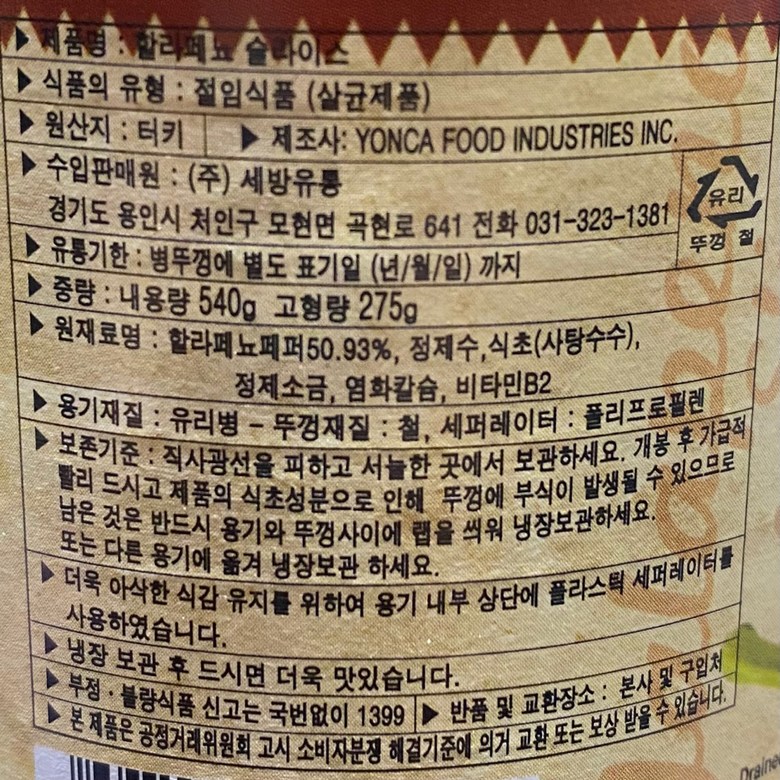 ▶ 제품명 : 할라페뇨 슬라이스
▶ 식품의 유형 : 절임식품 (살균제품)
▶ 원산지 : 터키 ▶ 제조사: YONCA FOOD INDUSTRIES INC.
▶ 수입판매원 : (주) 세방유통
경기도 용인시 처인구 모현면 곡현로 641 전화 031-323-1381
유리
뚜껑 철
▶ 유통기한 : 병뚜껑에 별도 표기일 (년/월/일) 까지
▶ 중량 : 내용량 540g 고형량 275g
▶ 원재료명 : 할라페뇨페퍼50.93%, 정제수,식초(사탕수수),
정제소금, 염화칼슘, 비타민B2
▶ 용기재질 : 유리병 - 뚜껑재질 : 철, 세퍼레이터 : 폴리프로필렌
▶ 보존기준 : 직사광선을 피하고 서늘한 곳에서 보관하세요. 개봉 후 가급적
빨리 드시고 제품의 식초성분으로 인해 뚜껑에 부식이 발생될 수 있으므로
남은 것은 반드시 용기와 뚜껑사이에 랩을 씌워 냉장보관하세요.
또는 다른 용기에 옮겨 냉장보관 하세요.
▶ 더욱 아삭한 식감 유지를 위하여 용기 내부 상단에 플라스틱 세퍼레이터를
사용하였습니다.
▶ 냉장 보관 후 드시면 더욱 맛있습니다.
▶ 부정 · 불량식품 신고는 국번없이 1399 ▶ 반품 및 교환장소 : 본사 및 구입처
▶ 본 제품은 공정거래위원회 고시 소비자분쟁 해결기준에 의거 교환 또는 보상 받을 수 있습니다.